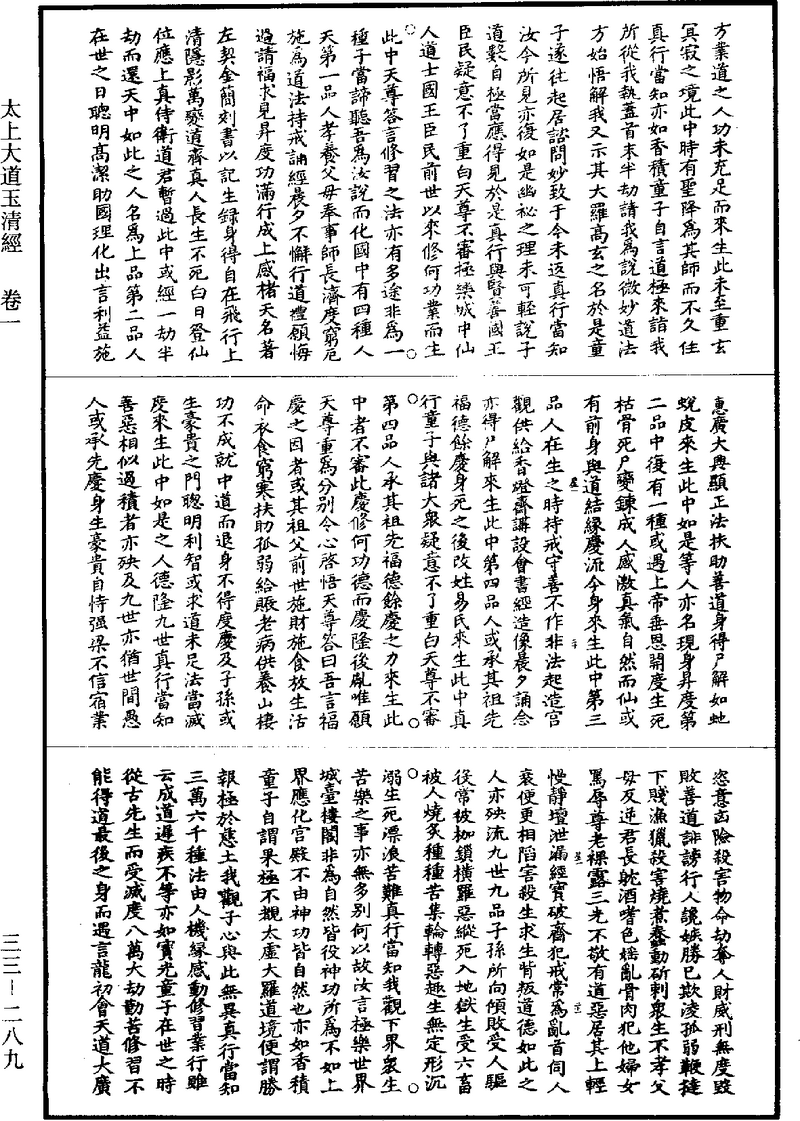 太上大道玉清經　卷一
三三-二八九
方業道之人功未充足而來生此未至重玄
冥寂之境此中時有聖降為其師而不久住
真行當知亦如香積童子自言道極來詣我
所從我執蓋首末半劫請我為說微妙道法
方始悟解我又示其大羅高玄之名於是童
子遂往起居諮問妙致于今未返真行當知
汝今所見亦復如是幽祕之理未可輕說子
道數自極當應得見於是真行與賢善國王
臣民疑意不了重白天尊不審極樂城中仙
人道士國王臣民前世以來修何功業而生
此中天尊答言修習之法亦有多途非為一
種子當諦聽吾為汝說而化國中有四種人
天第一品人孝養父母奉事師長濟度窮厄
施為道法持戒誦經晨夕不懈行道禮願悔
過請福求見昇度功滿行成上感楮天名著
左契金簡刻書以記生錄身得自在飛行上
清隱影萬變道齊真人長生不死白日登仙
位應上真侍衛道君暫過此中或經一劫半
劫而還天中如此之人名為上品第二品人
在世之日聰明高潔助國理化出言利益施
惠廣大興顯正法扶助善道身得尸解如虵
蛻皮來生此中如是等人亦名現身昇度第
二品中復有一種或遇上帝垂恩開度生死
枯骨死尸變鍊成人感激真氣自然而仙或
有前身與道結緣慶流今身來生此中第三
品人在生之時持戒守善不作非法起造宮
觀供給香燈齋講設會書經造像晨夕誦念
亦得尸解來生此中第四品人或承其祖先
福德餘慶身死之後改姓易氏來生此中真
行童子與諸大眾疑意不了重白天尊不審
第四品人承其祖先福德餘慶之力來生此
中者不審此慶修何功德而慶隆後胤唯願
天尊重為分別令心啓悟天尊答曰吾言福
慶之因者或其祖父前世施財施食放生活
命衣食窮寒扶助孤弱給賑老病供養山棲
功不成就中道而退身不得度慶及子孫或
生豪貴之門聰明利智或求道未足法當滅
度來生此中如是之人德隆九世真行當知
善惡相似過積者亦殃及九世亦猶世間愚
人或承先慶身生豪貴自恃強梁不信宿業
恣意凶險殺害物命劫奪人財威刑無度毀
敗善道誹謗行人譏嫉勝己欺凌孤弱鞭撻
下賤漁獵殺害燒煮蠢動斫剌眾生不孝父
母反逆君長躭酒嗜色婬亂骨肉犯他婦女
罵辱尊老裸露三光不敬有道惡居其上輕
慢靜壇泄漏經寶破齋犯戒常為亂首伺人
衰便更相陷害殺生求生背叛道德如此之
人亦殃流九世九品子孫所向傾敗受人驅
役常被枷鎖橫羅惡縱死入地獄生受六畜
被人燒炙種種苦集輪轉惡趣生無定形沉
溺生死漂浪苦難真行當知我觀下界眾生
苦樂之事亦無多別何以故汝言極樂世界
城臺樓閣非為自然皆役神功所為不如上
界應化宮殿不由神功皆自然也亦如香積
童子自謂果極不觀太虛大羅道境便謂勝
報極於慈土我觀子心與此無異真行當知
三萬六千種法由人機緣感動修習業行雖
云成道遲疾不等亦如寶光童子在世之時
從古先生而受滅度八萬大劫勤苦修習不
能得道最後之身而遇言龍初會天道大廣